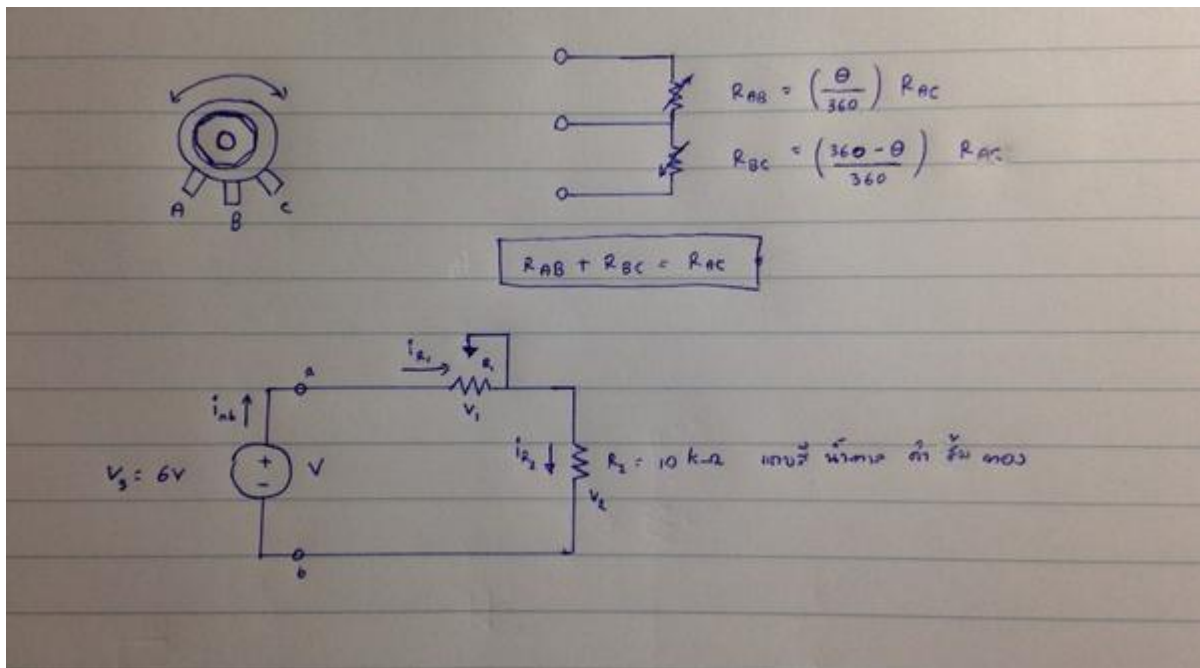 R_AB = (θ/360) R_AC
R_BC = (360 - θ/360) R_AC
A B C
R_AB + R_BC = R_AC
a
i_R1
R1
V1
i_ab
V_s = 6V
+
-
V
i_R2
R2 = 10 kΩ แถบสี น้ำตาล ดำ ส้ม ทอง
V2
b